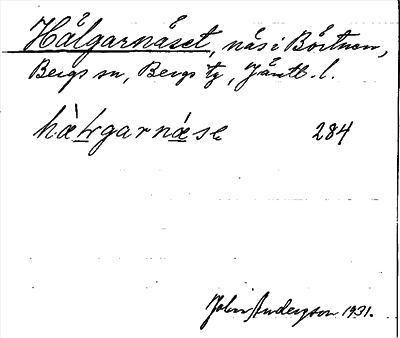 Hålgarnåset, näs i Börtnen,
Bergs sn, Bergs tg, Jämtl. l.
hàlrgarnæse 284
John Anderson 1931.